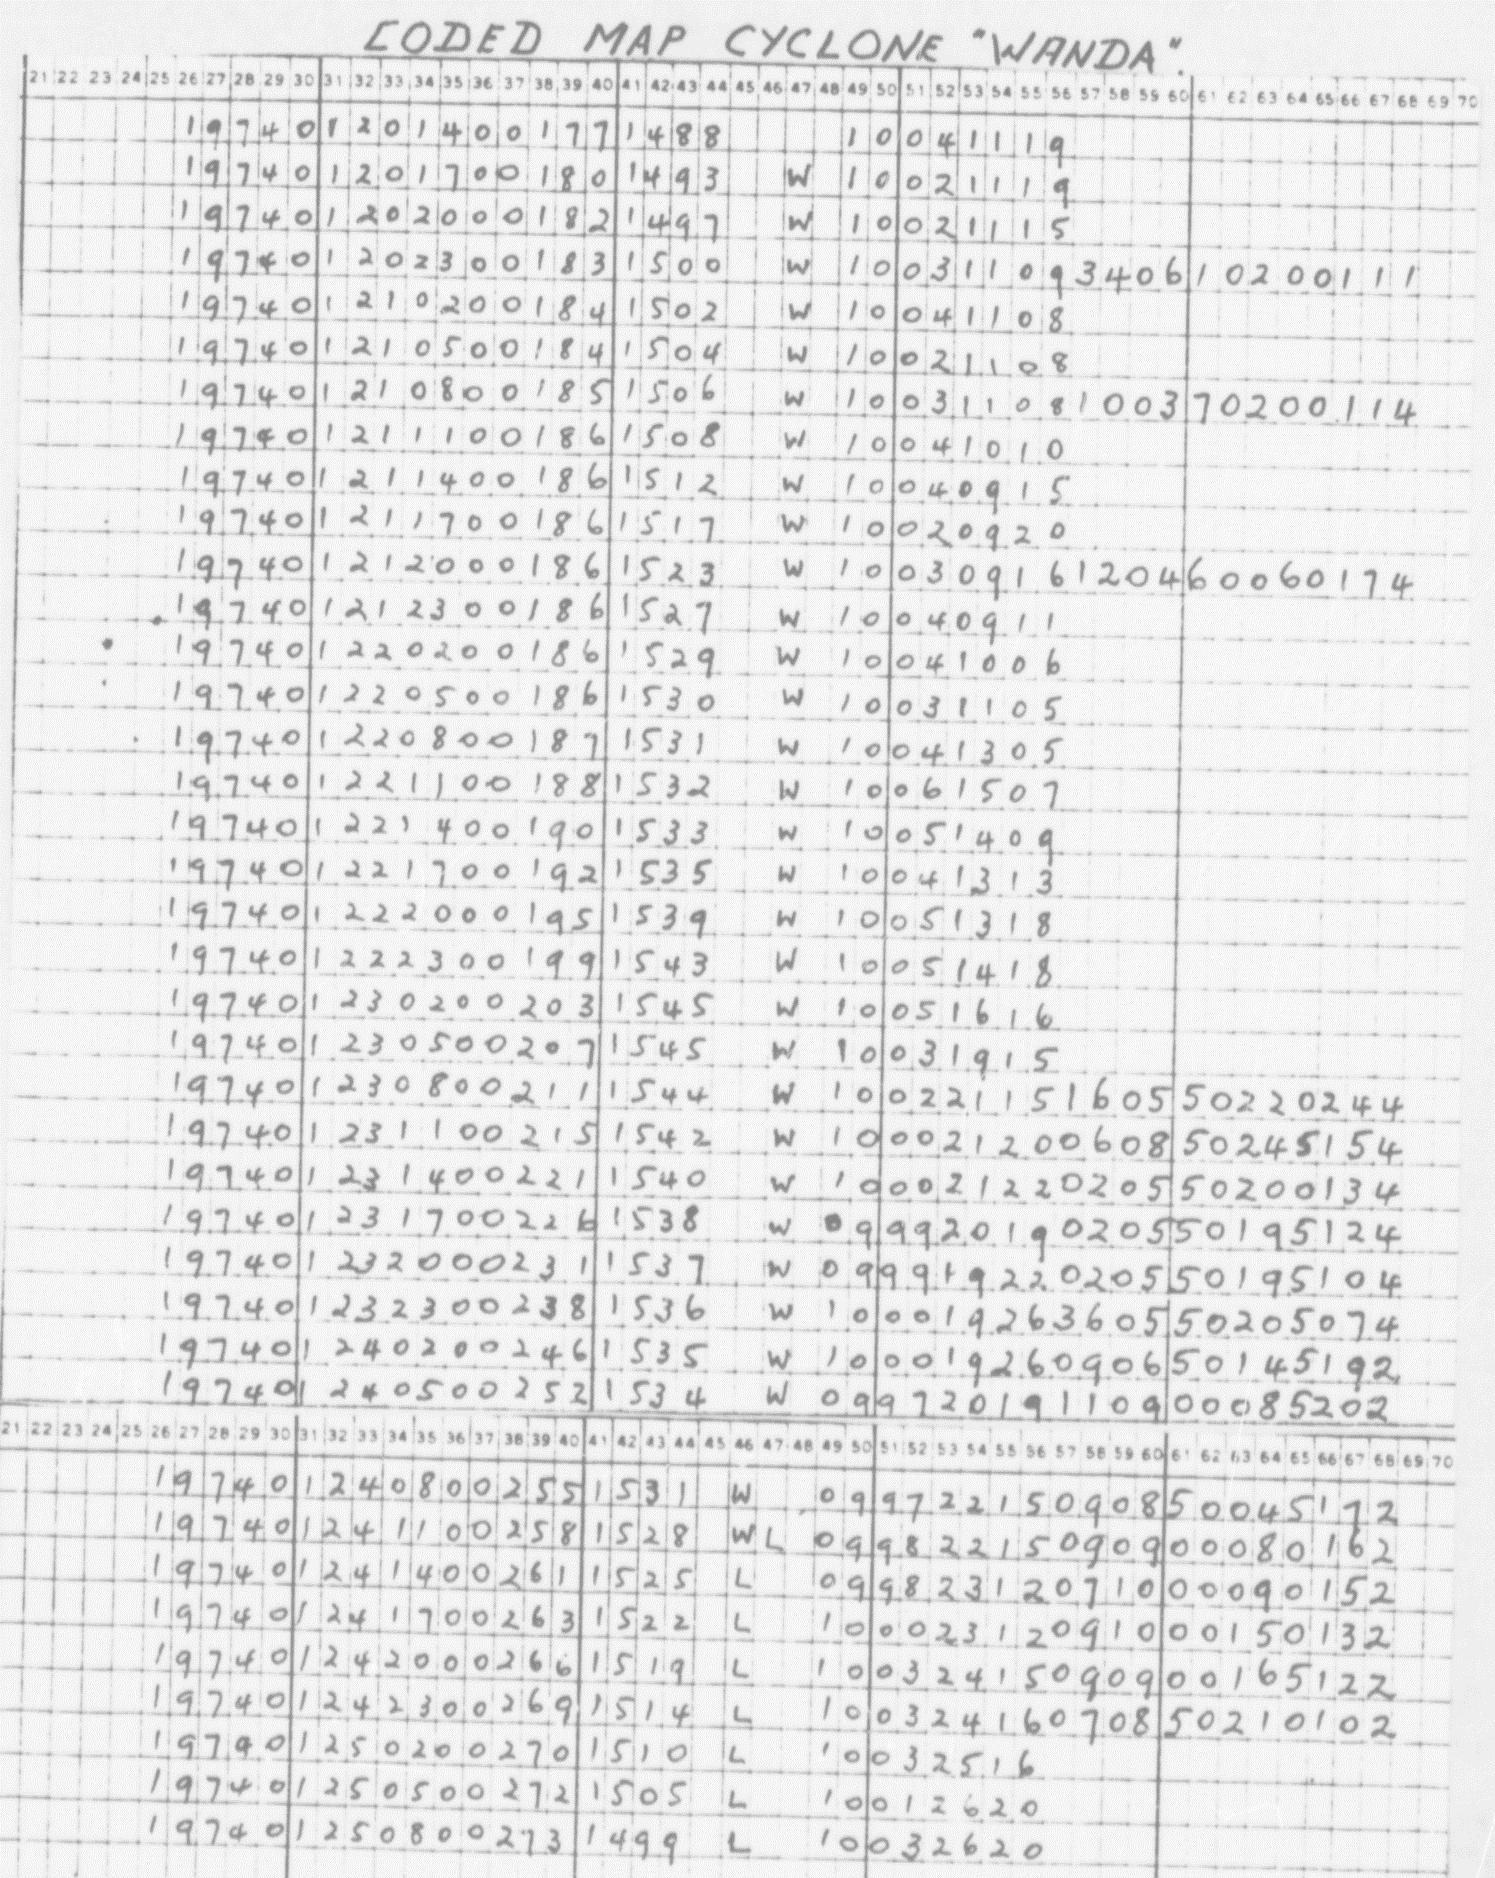 CODED MAP CYCLONE "WANDA".
21 22 23 24 25 26 27 28 29 30 31 32 33 34 35 36 37 38 39 40 41 42 43 44 45 46 47 48 49 50 51 52 53 54 55 56 57 58 59 60 61 62 63 64 65 66 67 68 69 70
1974012014001771488 10041119
1974012017001801493 W 10021119
1974012020001821497 W 10021115
1974012023001831500 W 10031109340610200111
1974012102001841502 W 10041108
1974012105001841504 W 10021108
1974012108001851506 W 10031108100370200114
1974012111001861508 W 10041010
1974012114001861512 W 10040915
1974012117001861517 W 10020920
1974012120001861523 W 10030916120460060174
1974012123001861527 W 10040911
1974012202001861529 W 10041006
1974012205001861530 W 10031105
1974012208001871531 W 10041305
1974012211001881532 W 10061507
1974012214001901533 W 10051409
1974012217001921535 W 10041313
1974012220001951539 W 10051318
1974012223001991543 W 10051418
1974012302002031545 W 10051616
1974012305002071545 W 10031915
1974012308002111544 W 10022115160550220244
1974012311002151542 W 10002120060850245154
1974012314002211540 W 10002122020550200134
1974012317002261538 W 09992019020550195124
1974012320002311537 W 09991922020550195104
1974012323002381536 W 10001926360550205074
1974012402002461535 W 10001926090650145192
1974012405002521534 W 09972019110900085202
21 22 23 24 25 26 27 28 29 30 31 32 33 34 35 36 37 38 39 40 41 42 43 44 45 46 47 48 49 50 51 52 53 54 55 56 57 58 59 60 61 62 63 64 65 66 67 68 69 70
1974012408002551531 W 09972215090850045172
1974012411002581528 WL 09982215090900080162
1974012414002611525 L 09982312071000090152
1974012417002631522 L 10002312091000150132
1974012420002661519 L 10032415090900165122
1974012423002691514 L 10032416070850210102
1974012502002701510 L 10032516
1974012505002721505 L 10012620
1974012508002731499 L 10032620